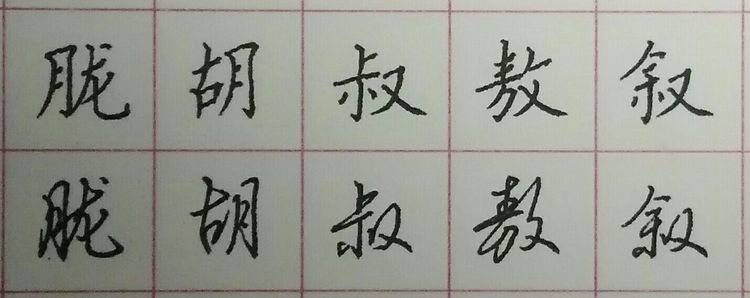 胧胡叔敖叙
胧胡叔敖叙